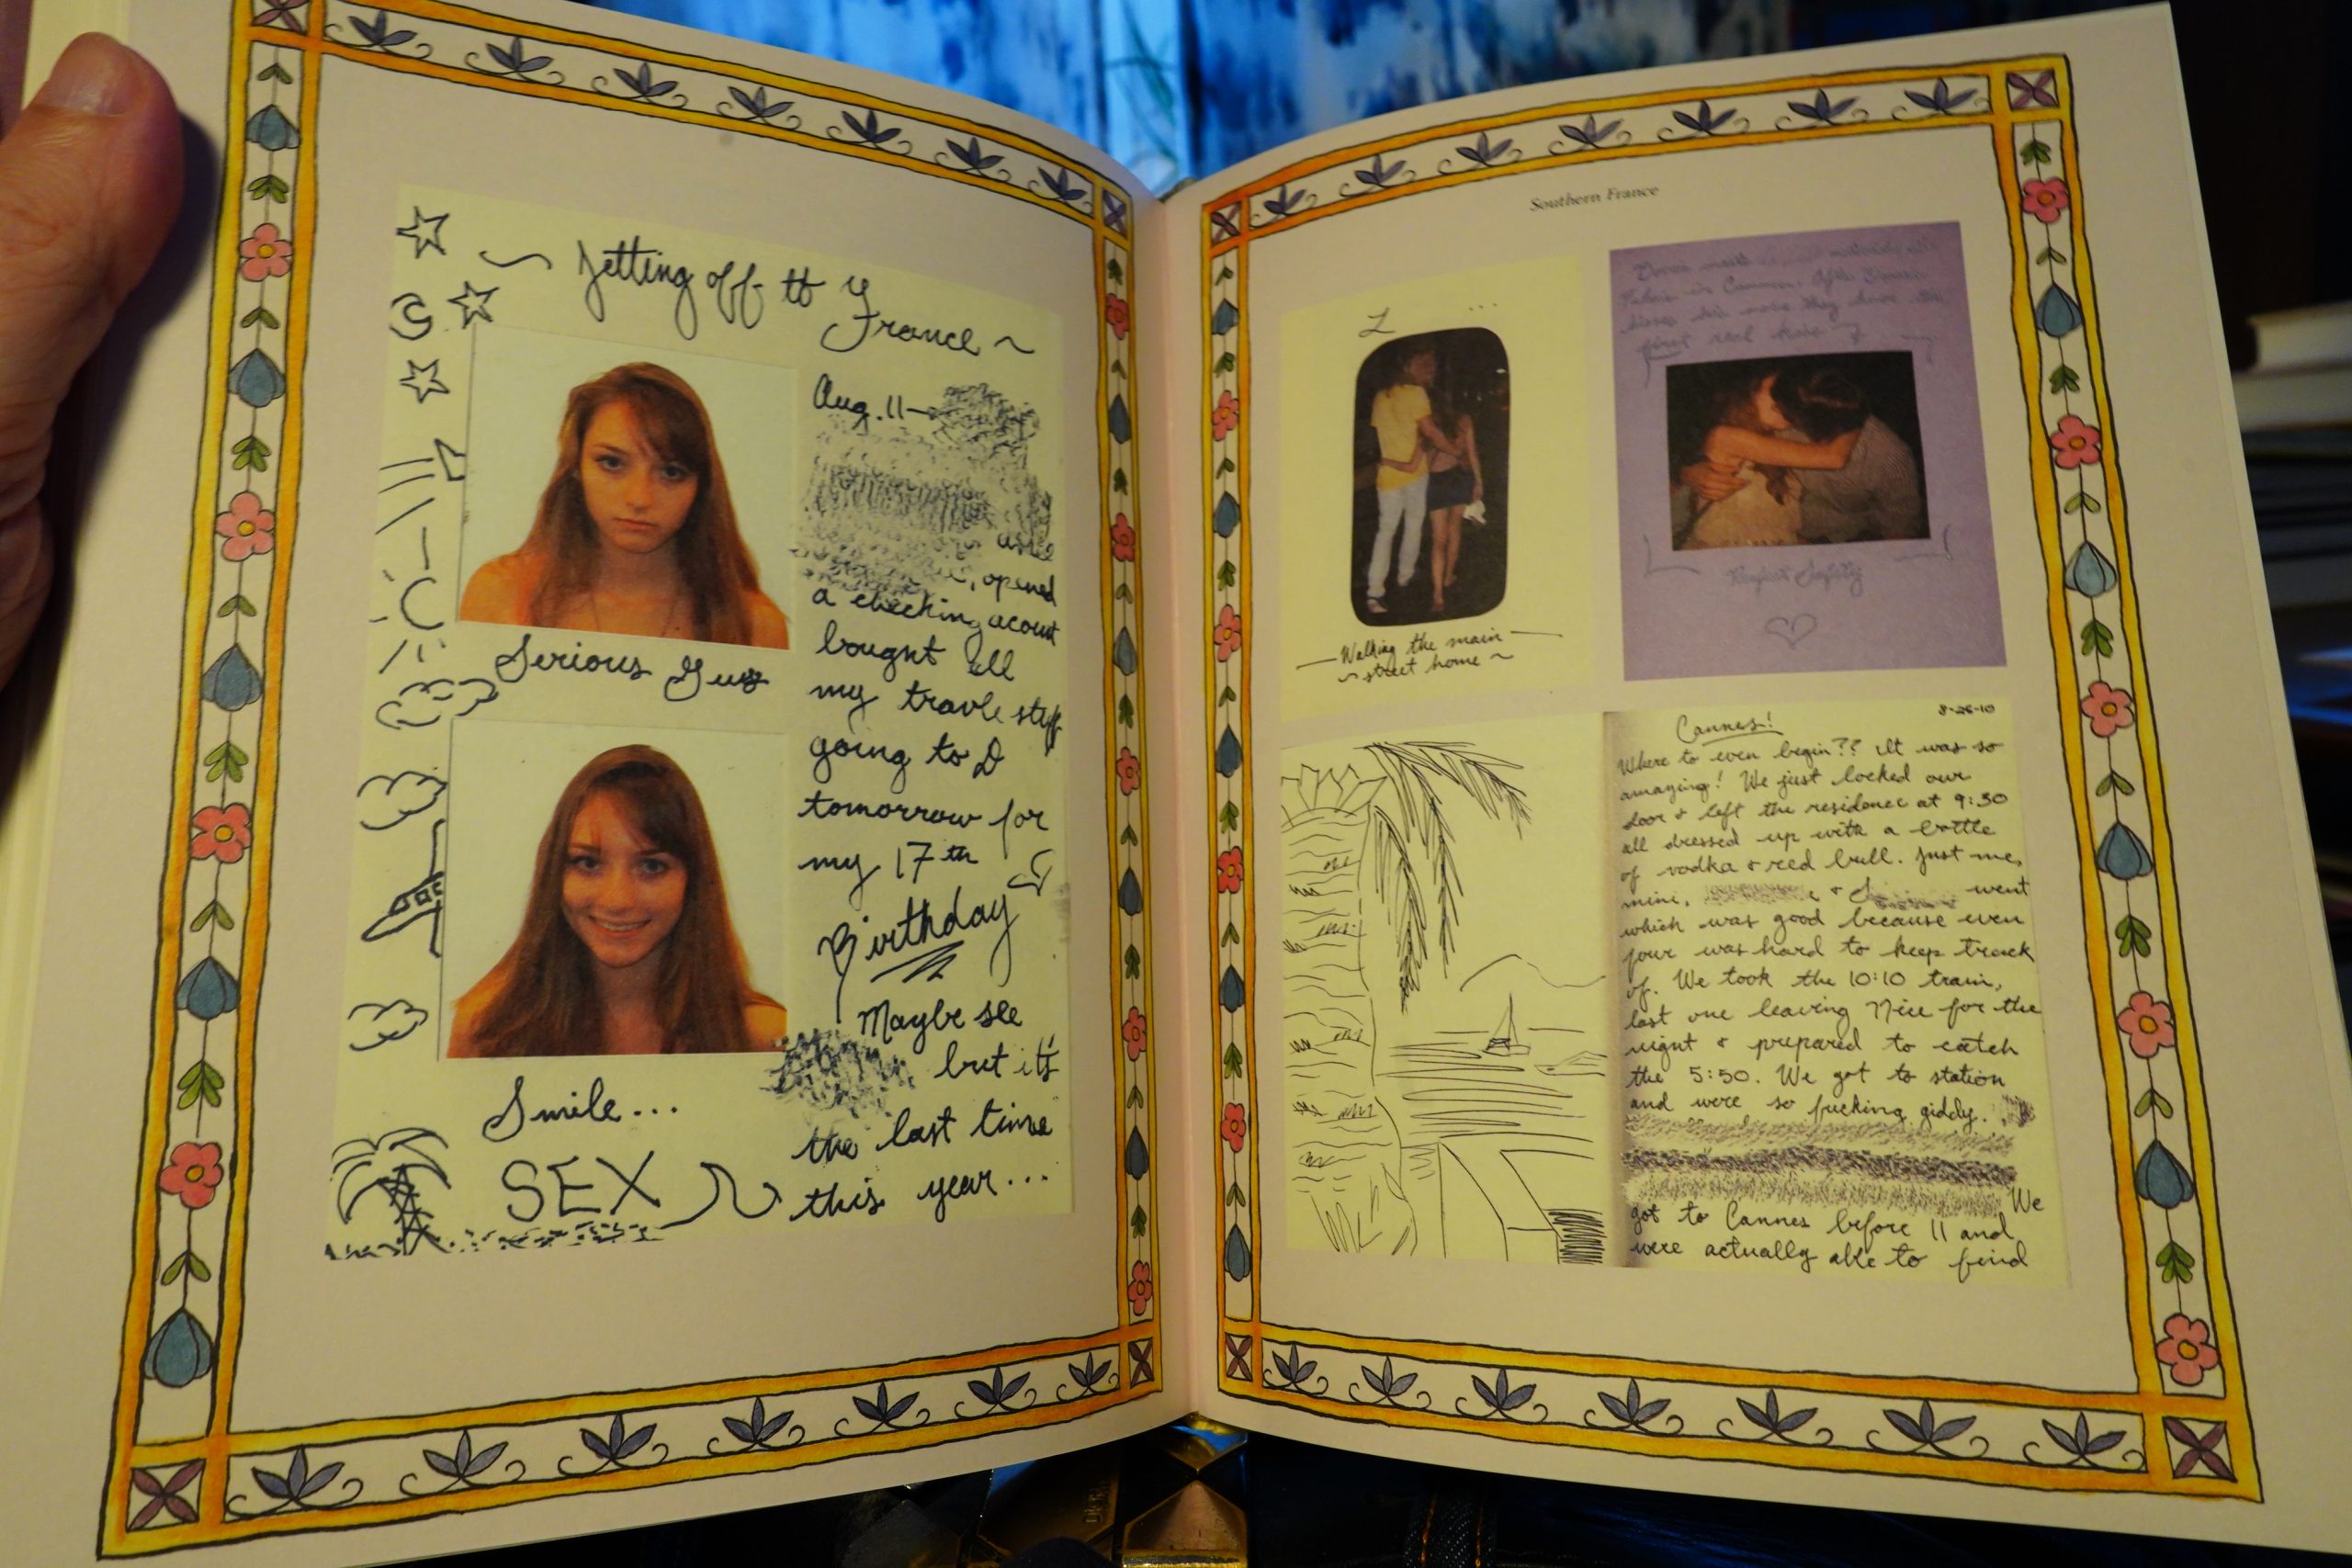 ~ Jetting off to
France ~
Aug. 11 —
, opened
a checking acount
bought all
my travle stuff
going to D
tomorrow for
my 17th
Birthday
Maybe see
but it's
the last time
this year...
Serious Guy
Smile...
SEX
Southern France
L ...
— Walking the main —
~ street home ~
in Cannes. After
kisses him more they have their
first real kiss
Perfect Safety
8-26-10
Cannes!
Where to even begin?? It was so
amazing! We just locked our
door & left the residence at 9:30
all dressed up with a bottle
of vodka & red bull. Just me,
mini, & went
which was good because even
four was hard to keep track
of. We took the 10:10 train,
last one leaving Nice for the
night & prepared to catch
the 5:50. We got to station
and were so fucking giddy.
We
got to Cannes before 11 and
were actually able to find